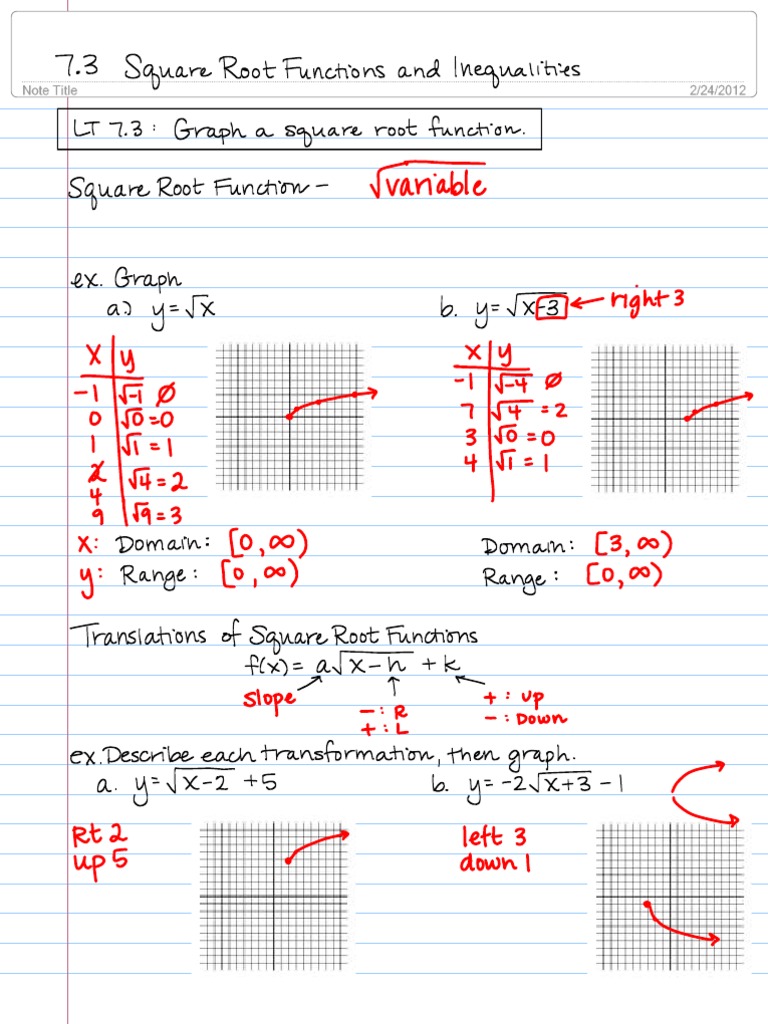 7.3 Square Root Functions and Inequalities
Note Title 2/24/2012
LT 7.3: Graph a square root function.
Square Root Function - √variable
ex. Graph
a.) y=√x
b. y=√x-3 ← right 3
x | y
-1 | √-1 ∅
0 | √0=0
1 | √1=1
2 | √4=2
4
9 | √9=3
x | y
-1 | √-4 ∅
7 | √4=2
3 | √0=0
4 | √1=1
x: Domain: [0,∞)
y: Range: [0,∞)
Domain: [3,∞)
Range: [0,∞)
Translations of Square Root Functions
f(x)= a√x-h +k
slope
-: R
+: L
+: up
-: Down
ex. Describe each transformation, then graph.
a. y=√x-2 +5
b. y=-2√x+3 -1
Rt 2
up 5
left 3
down 1